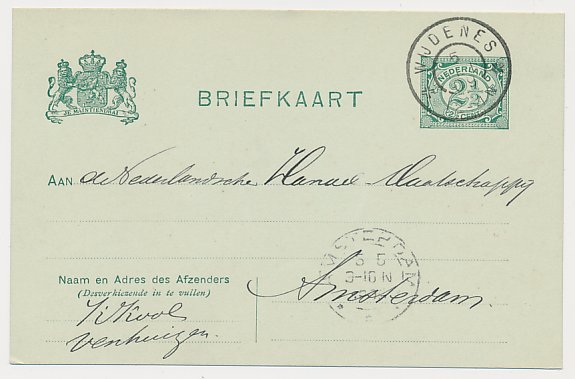 WIJDENES
NEDERLAND
2½
CENT
JE MAINTIENDRAI
BRIEFKAART
AAN de Nederlandsche Handel Maatschappij
AMSTERDAM
5 5
9-10 N
Naam en Adres des Afzenders
(Desverkiezende in te vullen)
Kool
Venhuizen.
Amsterdam